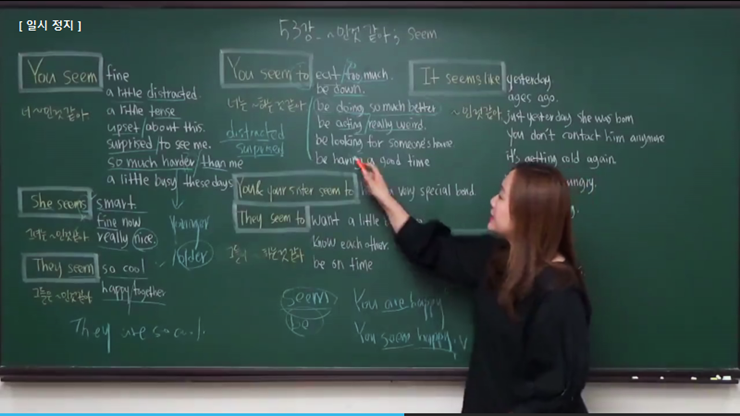 [ 일시 정지 ]
53강. ~인것 같아; seem
You seem fine
a little distracted.
너 ~인것 같아
a little tense
upset/about this.
surprised/to see me.
so much harder/than me
a little busy these days
She seems smart.
fine now
그녀는 ~인것 같아
really nice.
younger
older
They seem so cool
그들은 ~인것 같아
happy together
They are so cool.
You seem to eat/too much.
be down.
너는 ~하는것 같아
be doing so much better
be acting/really weird.
distracted
surprised
be looking for someone's
be having a good time
You & your sister seem to very special bond.
They seem to want a little
know each other.
be on time
seem
be
You are happy
You seem happy.
It seems like yesterday
ages ago.
~인것 같아
just yesterday she was born
you don't contact him anymore
it's getting cold again
hungry.